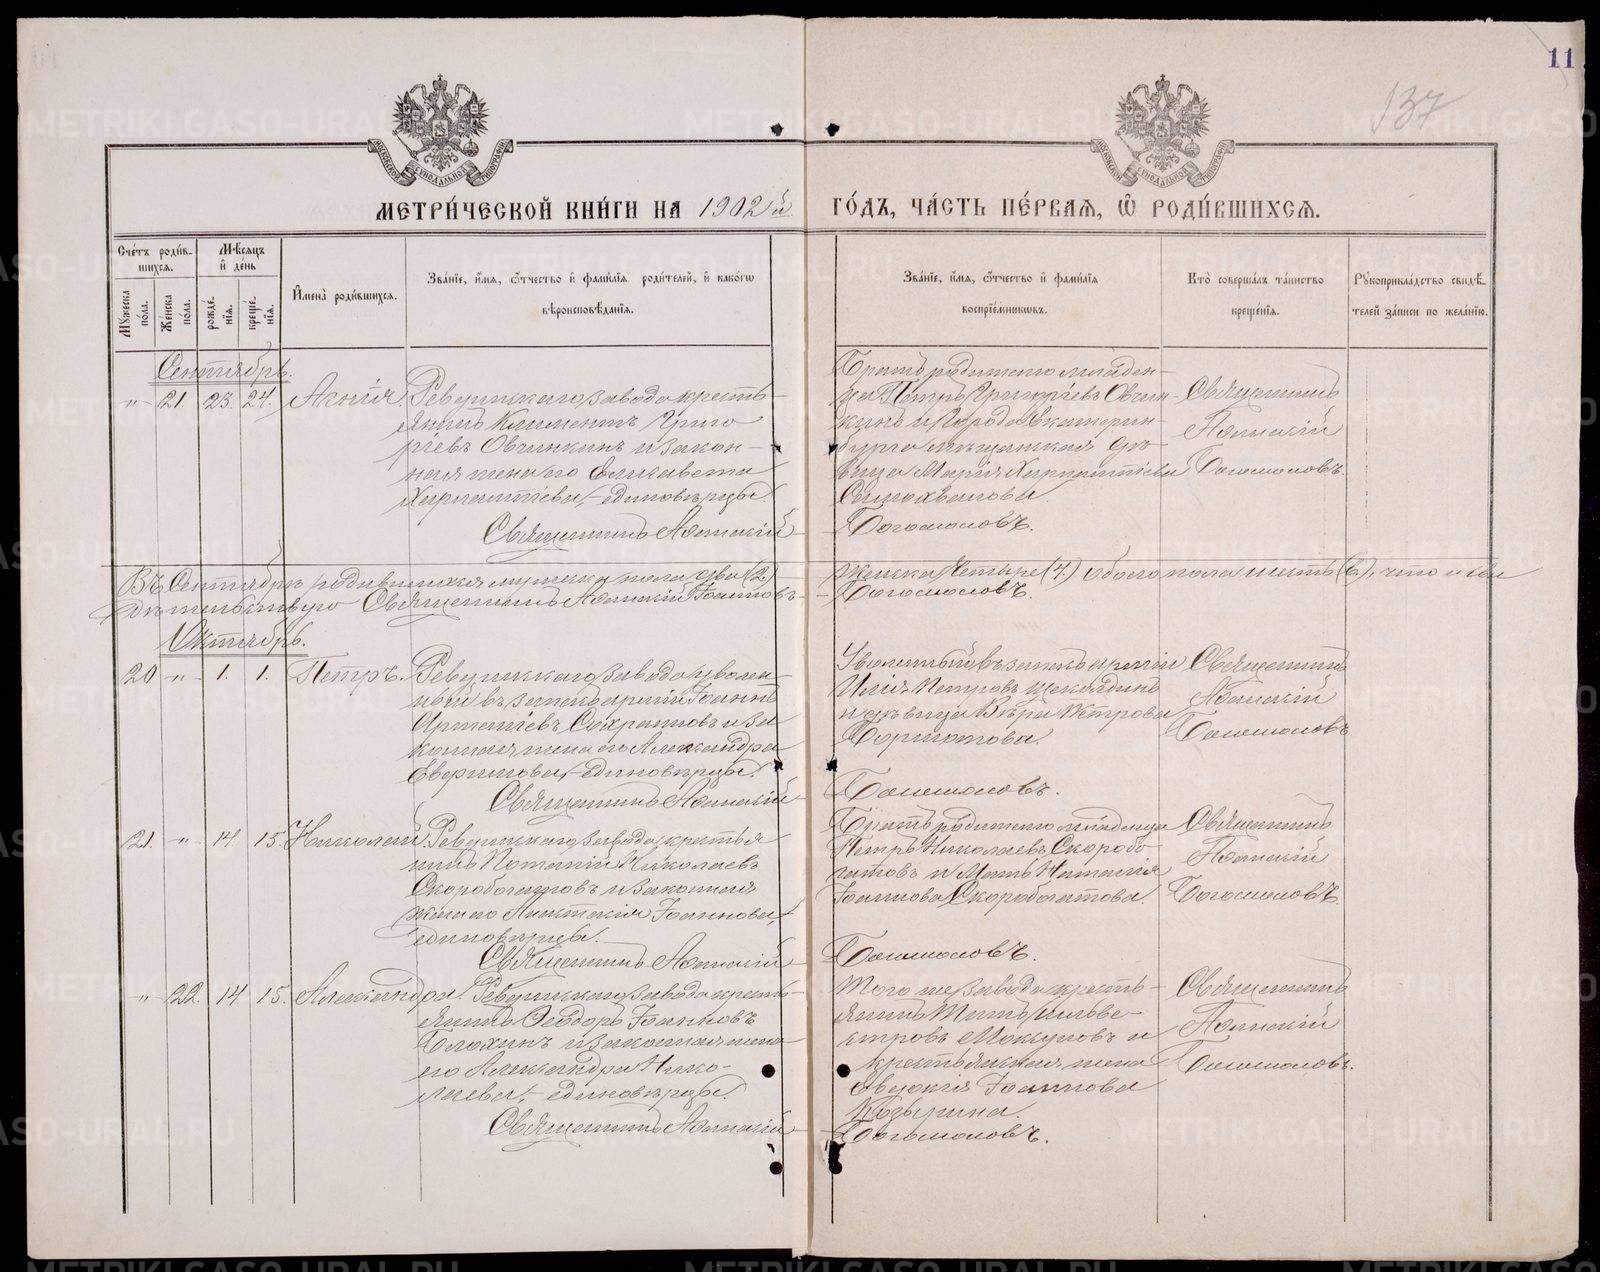 11
137
МЕТРИ́ЧЕСКОЙ КНИ́ГИ НА 1902й
ГО́ДЪ, ЧА́СТЬ ПЕ́РВАѦ, Ѿ РОДИ́ВШИХСѦ.
Сче́тъ роди́в-
шихсѧ.
Мꙋжеска по́ла.
Же́нска по́ла.
Мѣ́сѧцъ
и҆ де́нь
рожде́-
нїѧ.
креще́-
нїѧ.
И҆мена̀ роди́вшихсѧ.
Зва́нїе, и҆́мѧ, ѻ҆́тчество и҆ фами́лїѧ роди́телей, и҆ како́гѡ
вѣроисповѣ́данїѧ.
Зва́нїе, и҆́мѧ, ѻ҆́тчество и҆ фами́лїѧ
воспрїе́мникѡвъ.
Кто̀ соверша́лъ та́инство
креще́нїѧ.
Рꙋкоприкла́дство свидѣ́-
телей за́писи по жела́нїю.
Сентябрь.
„ 21. 23. 24. Аснія.
Ревдинскаго завода кресть-
янинъ Климентъ Григо
рьевъ Овчинкинъ и закон-
ная жена его Елизавета
Харлампіева, – единовѣрцы.
Священникъ Афанасій
Братъ родителю младен-
ца Петръ Григорьевъ Овчин-
кинъ и города Екатерин-
бурга мѣщанская дѣ-
вица Марія Харлампіева
Богомоловъ.
Священникъ
Афанасій
Богомоловъ.
Въ Сентябрѣ родившихся мужска пола два (2)
женска четыре (4) обоего пола шесть (6), что и сви
дѣтельствую Священникъ Афанасій Іоанновъ
Богомоловъ.
Октябрь.
20 „ 1. 1. Петръ.
Ревдинскаго завода уволен-
ный въ запасъ арміи Іоаннъ
и за
конная жена его Александра
единовѣрцы.
Священникъ Афанасій
Уволенный въ запасъ арміи
Илія Петровъ
и дѣвица Вѣра Петрова
Богомоловъ.
Священникъ
Афанасій
Богомоловъ
21. „ 14. 15. Николай
Ревдинскаго завода крестья
нинъ Потапій Николаевъ
Скоробогатовъ и законная
жена его Анастасія Іоаннова, –
единовѣрцы.
Священникъ Афанасій
Братъ родителю младенца
Петръ Николаевъ Скоробо-
гатовъ и Мать Наталія
Іоаннова Скоробогатова.
Богомоловъ.
Священникъ
Афанасій
Богомоловъ.
„ 22 14 15. Александра.
Ревдинскаго завода кресть-
янинъ Ѳеодоръ Іоанновъ
Блохинъ и законная жена
его Александра Нико-
лаева, – единовѣрцы.
Священникъ Афанасій
Того же завода кресть-
янинъ
и
крестьянская жена
Евдокія Іоаннова
Козырина.
Богомоловъ.
Священникъ
Афанасій
Богомоловъ.
METRIKI.GASO-URAL.RU